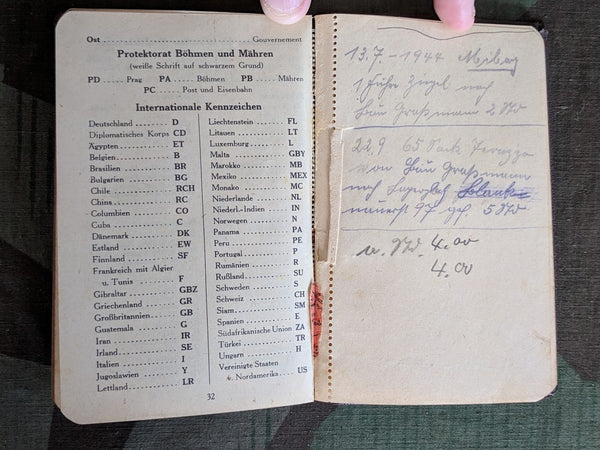 Ost ........ Gouvernement
Protektorat Böhmen und Mähren
(weiße Schrift auf schwarzem Grund)
PD ..... Prag PA ..... Böhmen PB ..... Mähren
PC ..... Post und Eisenbahn
Internationale Kennzeichen
Deutschland ........ D
Diplomatisches Korps CD
Ägypten ........ ET
Belgien ........ B
Brasilien ........ BR
Bulgarien ........ BG
Chile ........ RCH
China ........ RC
Columbien ........ CO
Cuba ........ C
Dänemark ........ DK
Estland ........ EW
Finnland ........ SF
Frankreich mit Algier
u. Tunis ........ F
Gibraltar ........ GBZ
Griechenland ........ GR
Großbritannien ........ GB
Guatemala ........ G
Iran ........ IR
Irland ........ SE
Italien ........ I
Jugoslawien ........ Y
Lettland ........ LR
Liechtenstein ........ FL
Litauen ........ LT
Luxemburg ........ L
Malta ........ GBY
Marokko ........ MB
Mexiko ........ MEX
Monako ........ MC
Niederlande ........ NL
Niederl.-Indien ........ IN
Norwegen ........ N
Panama ........ PA
Peru ........ PE
Portugal ........ P
Rumänien ........ R
Rußland ........ SU
Schweden ........ S
Schweiz ........ CH
Siam ........ SM
Spanien ........ E
Südafrikanische Union ZA
Türkei ........ TR
Ungarn ........ H
Vereinigte Staaten
v. Nordamerika ........ US
32
13.7. - 1944
1 Fuhre nach
Bau Graßmann 2 Std
22.9 65 Sack
von Bau Graßmann
nach
97 5 Std
u. Std. 4.00
4.00